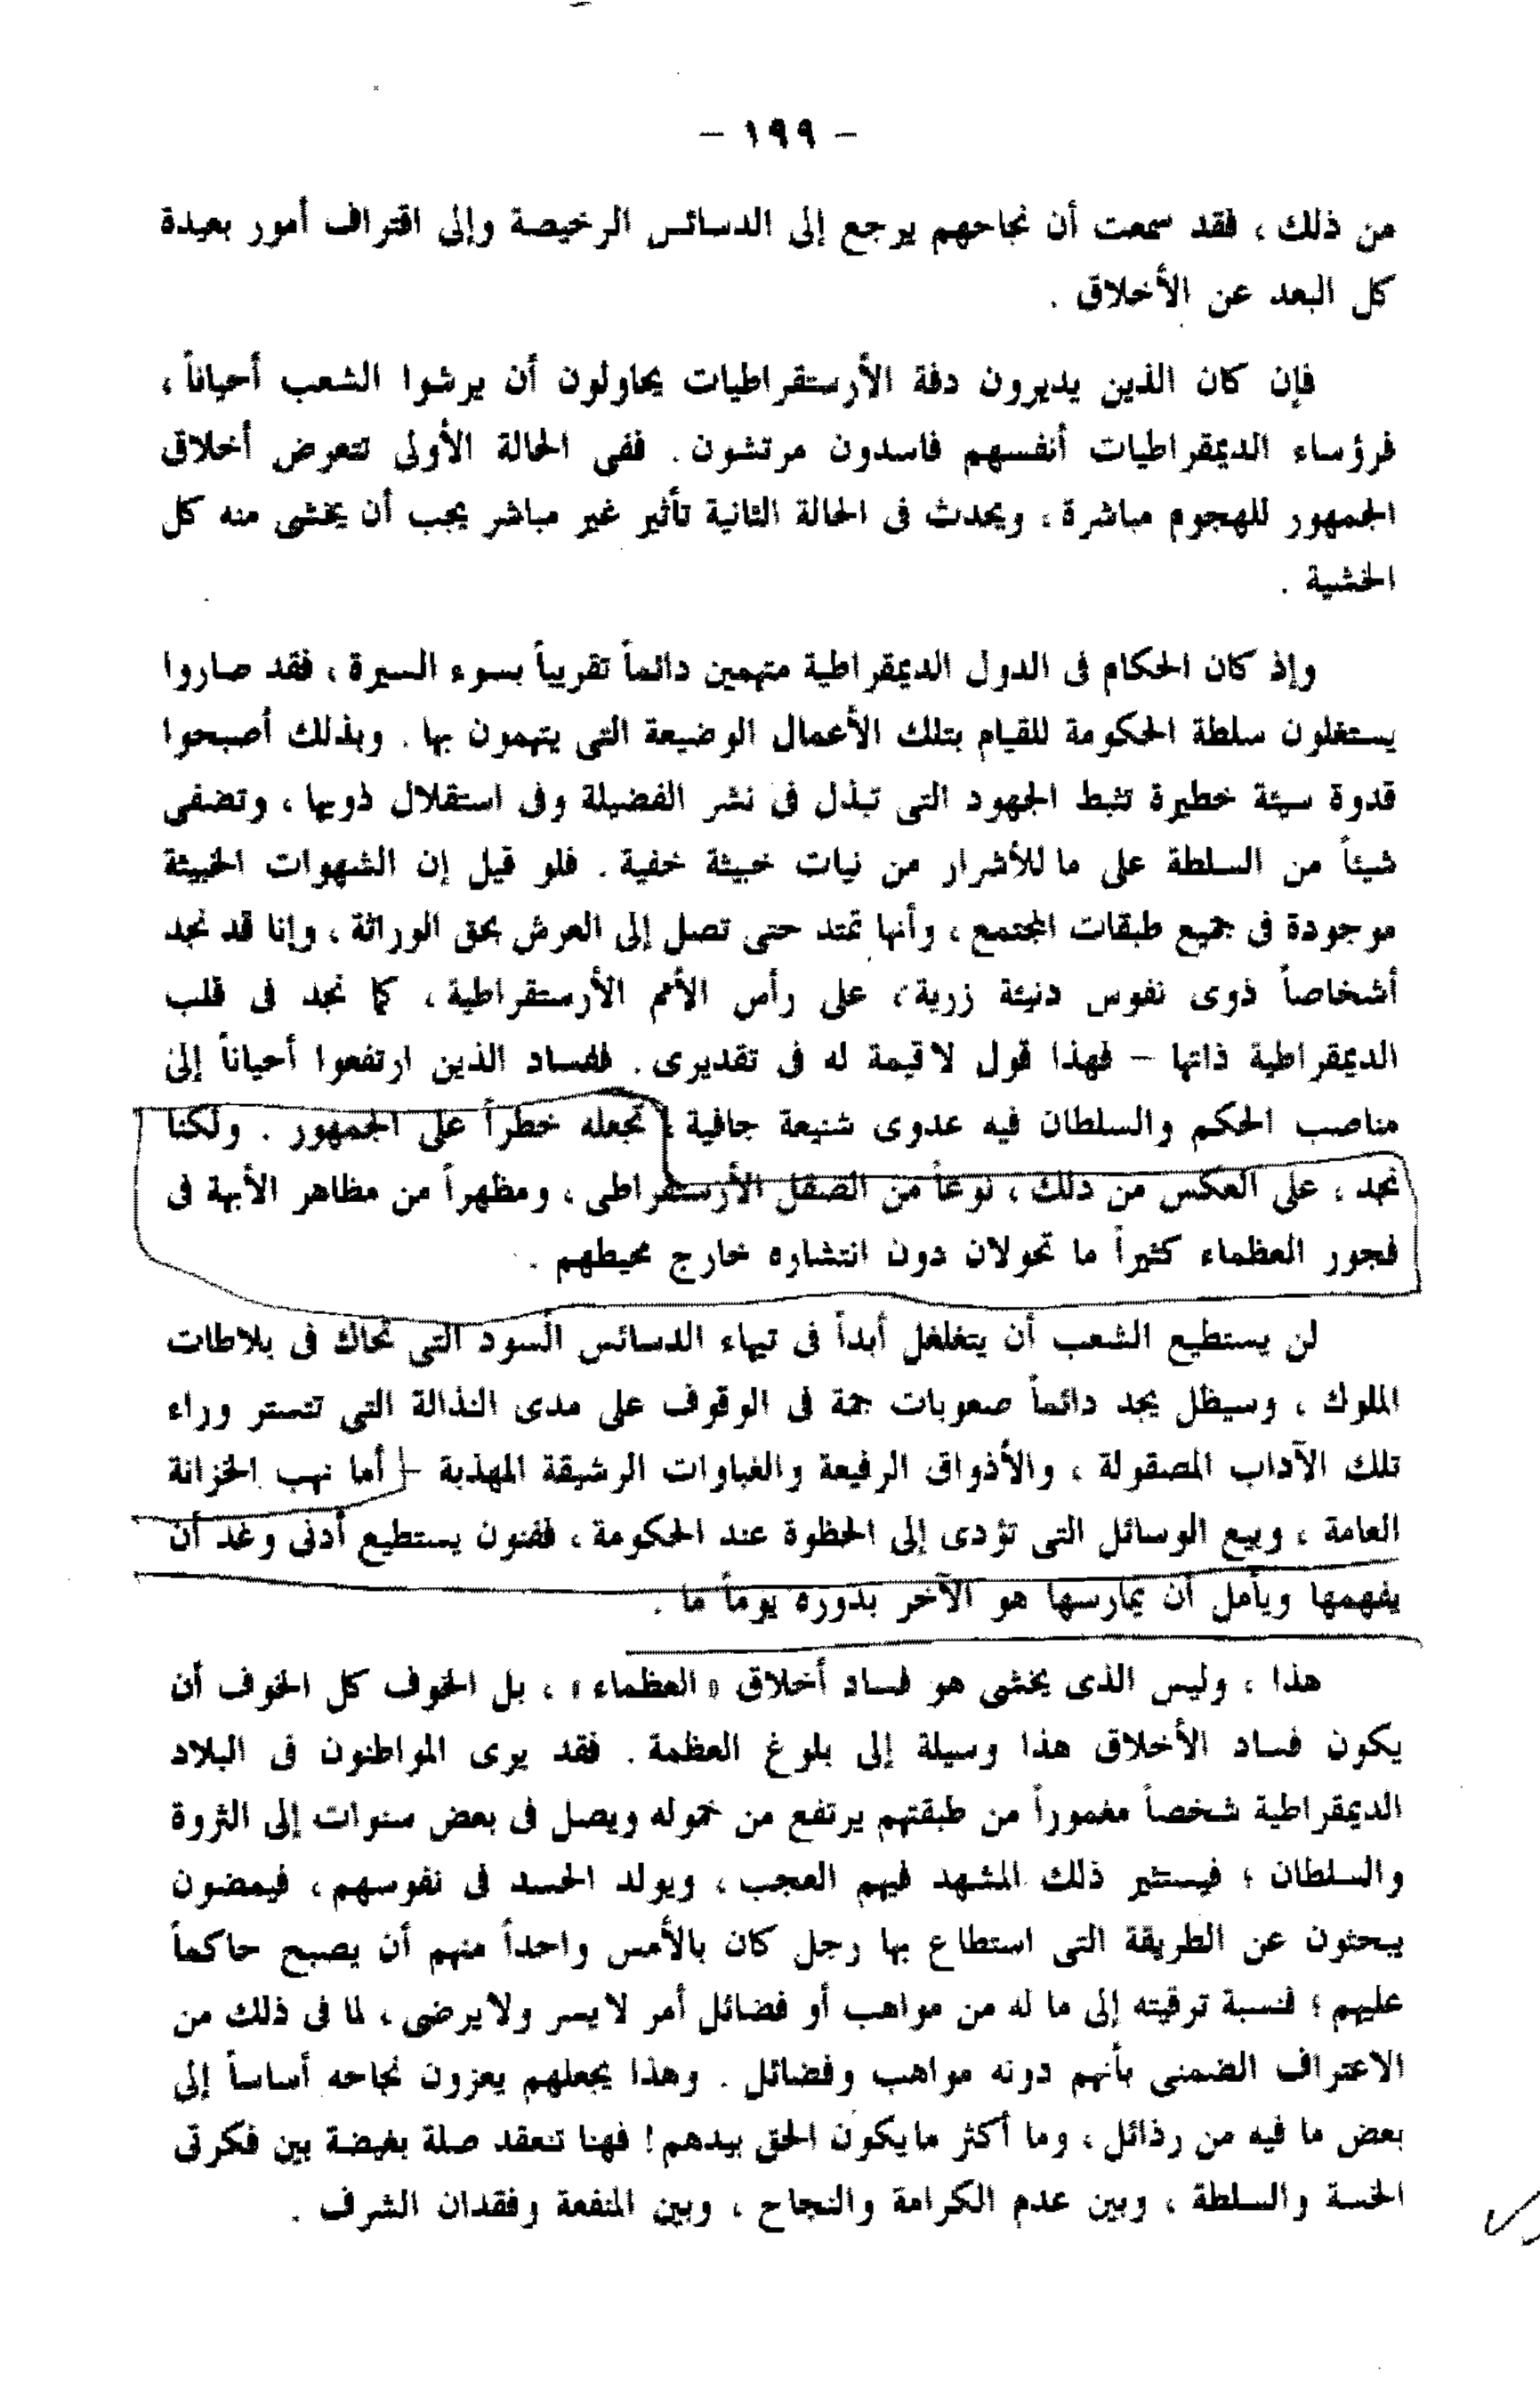 – ١٩٩ –
من ذلك ، فقد سمعت أن نجاحهم يرجع إلى الدسائس الرخيصة وإلى اقتراف أمور بعيدة
كل البعد عن الأخلاق .
فإن كان الذين يديرون دفة الأرستقراطيات يحاولون أن يرشوا الشعب أحياناً ،
فرؤساء الديمقراطيات أنفسهم فاسدون مرتشون . ففى الحالة الأولى تتعرض أخلاق
الجمهور للهجوم مباشرة ، ويحدث فى الحالة الثانية تأثير غير مباشر يجب أن يخشى منه كل
الخشية .
وإذ كان الحكام فى الدول الديمقراطية متهمين دائماً تقريباً بسوء السيرة ، فقد صاروا
يستغلون سلطة الحكومة للقيام بتلك الأعمال الوضيعة التى يتهمون بها . وبذلك أصبحوا
قدوة سيئة خطيرة تثبط الجهود التى تبذل فى نشر الفضيلة وفى استقلال ذويها ، وتضفى
شيئاً من السلطة على ما للأشرار من نيات خبيثة خفية . فلو قيل إن الشهوات الخبيثة
موجودة فى جميع طبقات المجتمع ، وأنها تمتد حتى تصل إلى العرش بحق الوراثة ، وإنا قد نجد
أشخاصاً ذوى نفوس دنيئة زرية ، على رأس الأمم الأرستقراطية ، كما نجد فى قلب
الديمقراطية ذاتها – فهذا قول لا قيمة له فى تقديرى . ففساد الذين ارتفعوا أحياناً إلى
مناصب الحكم والسلطان فيه عدوى شنيعة جافية تجعله خطراً على الجمهور . ولكنا
نجد ، على العكس من ذلك ، نوعاً من الصقل الأرستقراطى ، ومظهراً من مظاهر الأبهة فى
فجور العظماء كثيراً ما تحولان دون انتشاره خارج محيطهم .
لن يستطيع الشعب أن يتغلغل أبداً فى تيهاء الدسائس السود التى تحاك فى بلاطات
الملوك ، وسيظل يجد دائماً صعوبات جمة فى الوقوف على مدى النذالة التى تتستر وراء
تلك الآداب المصقولة ، والأذواق الرفيعة والغباوات الرشيقة المهذبة – أما نهب الخزانة
العامة ، وبيع الوسائل التى تؤدى إلى الحظوة عند الحكومة ، ففنون يستطيع أدنى وغد أن
يفهمها ويأمل أن يمارسها هو الآخر بدوره يوماً ما .
هذا ، وليس الذى يخشى هو فساد أخلاق « العظماء » ، بل الخوف كل الخوف أن
يكون فساد الأخلاق هذا وسيلة إلى بلوغ العظمة . فقد يرى المواطنون فى البلاد
الديمقراطية شخصاً مغموراً من طبقتهم يرتفع من خموله ويصل فى بعض سنوات إلى الثروة
والسلطان ؛ فيستثير ذلك المشهد فيهم العجب ، ويولد الحسد فى نفوسهم ، فيمضون
يبحثون عن الطريقة التى استطاع بها رجل كان بالأمس واحداً منهم أن يصبح حاكماً
عليهم ؛ فنسبة ترقيته إلى ما له من مواهب أو فضائل أمر لا يسر ولا يرضى ، لما فى ذلك من
الاعتراف الضمنى بأنهم دونه مواهب وفضائل . وهذا يجعلهم يعزون نجاحه أساساً إلى
بعض ما فيه من رذائل ، وما أكثر ما يكون الحق بيدهم ! فهنا تنعقد صلة بغيضة بين فكرتى
الخسة والسلطة ، وبين عدم الكرامة والنجاح ، وبين المنفعة وفقدان الشرف .